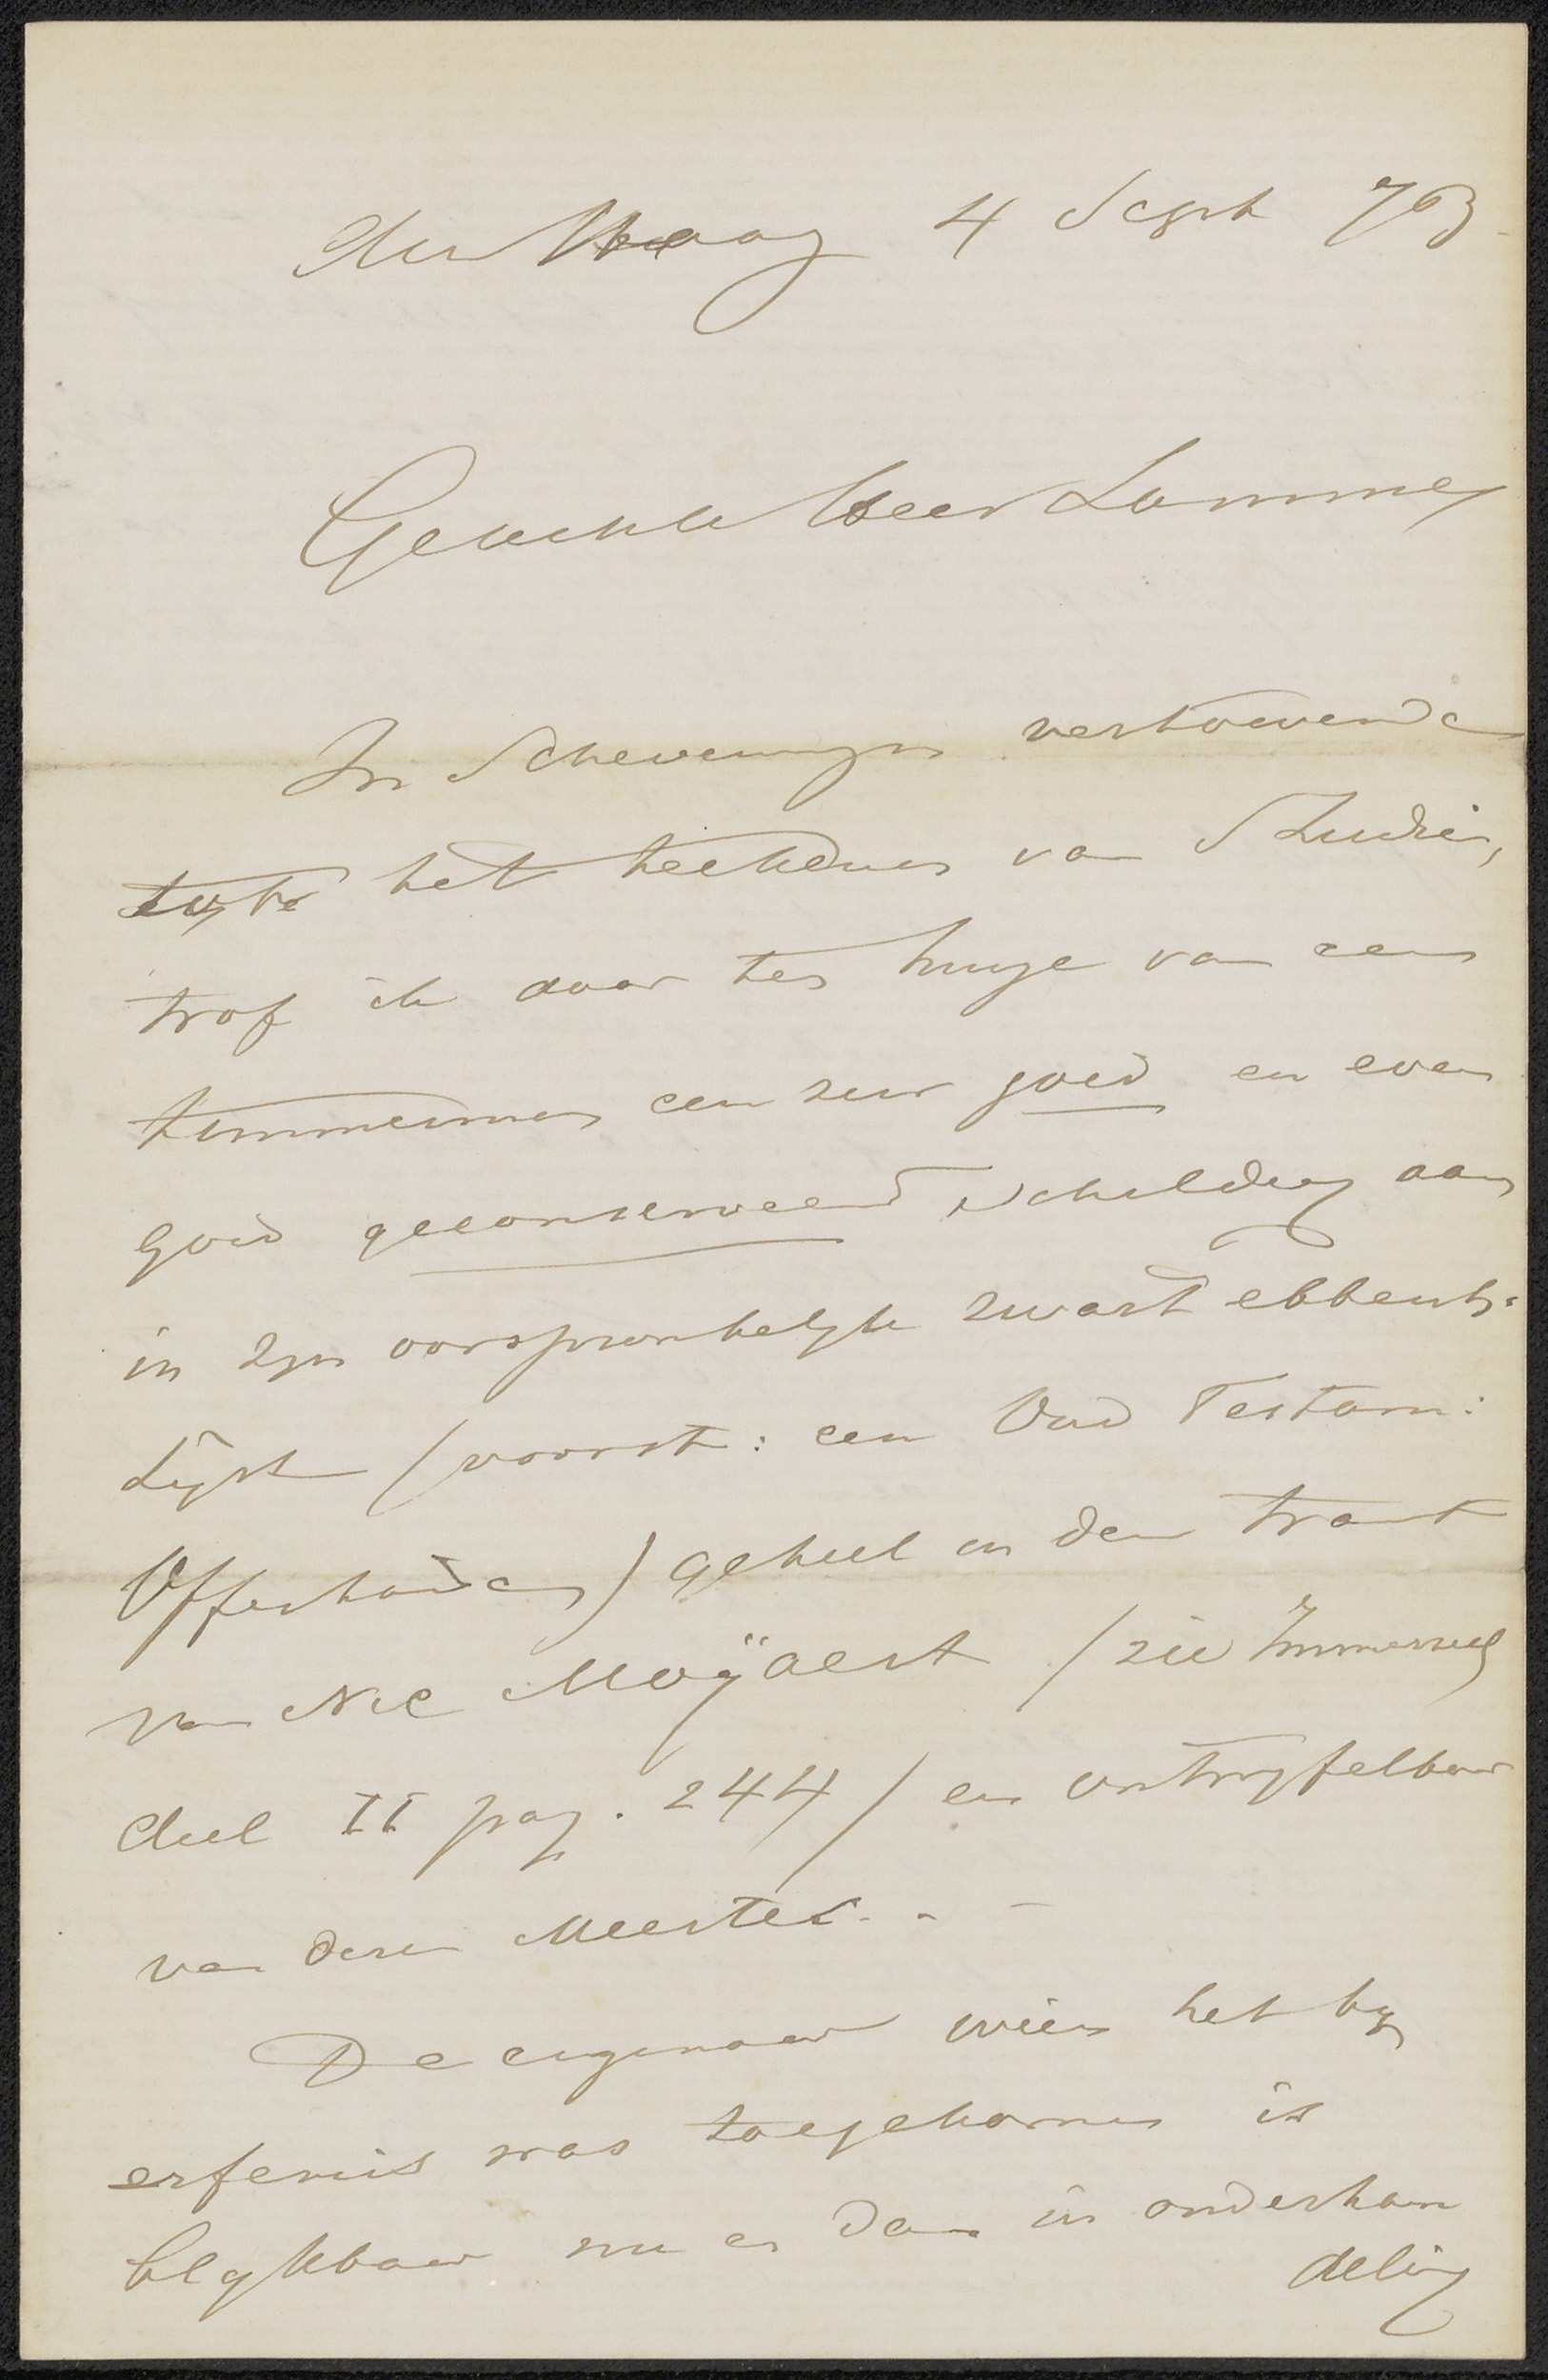 den Haag 4 Sept 73
Geachte Heer Lamme
In Scheveningen vertoevende
tot het teekenen van Studien,
trof ik daar ten huize van een
timmerman een zeer goed en even
goed geconserveerd schilderij aan
in zyn oorspronkelyke zwart ebbenh:
Lijst (voorst: een Oud Testam:
Offerhande) geheel in den trant
van Nic Moÿaert (zie Immerzeel
deel II pag. 244) en ontwyfelbaar
van dezen Meester. - -
De eigenaar wien het by
erfenis was toegekomen is
blykbaar nu en dan in onderhan
deling